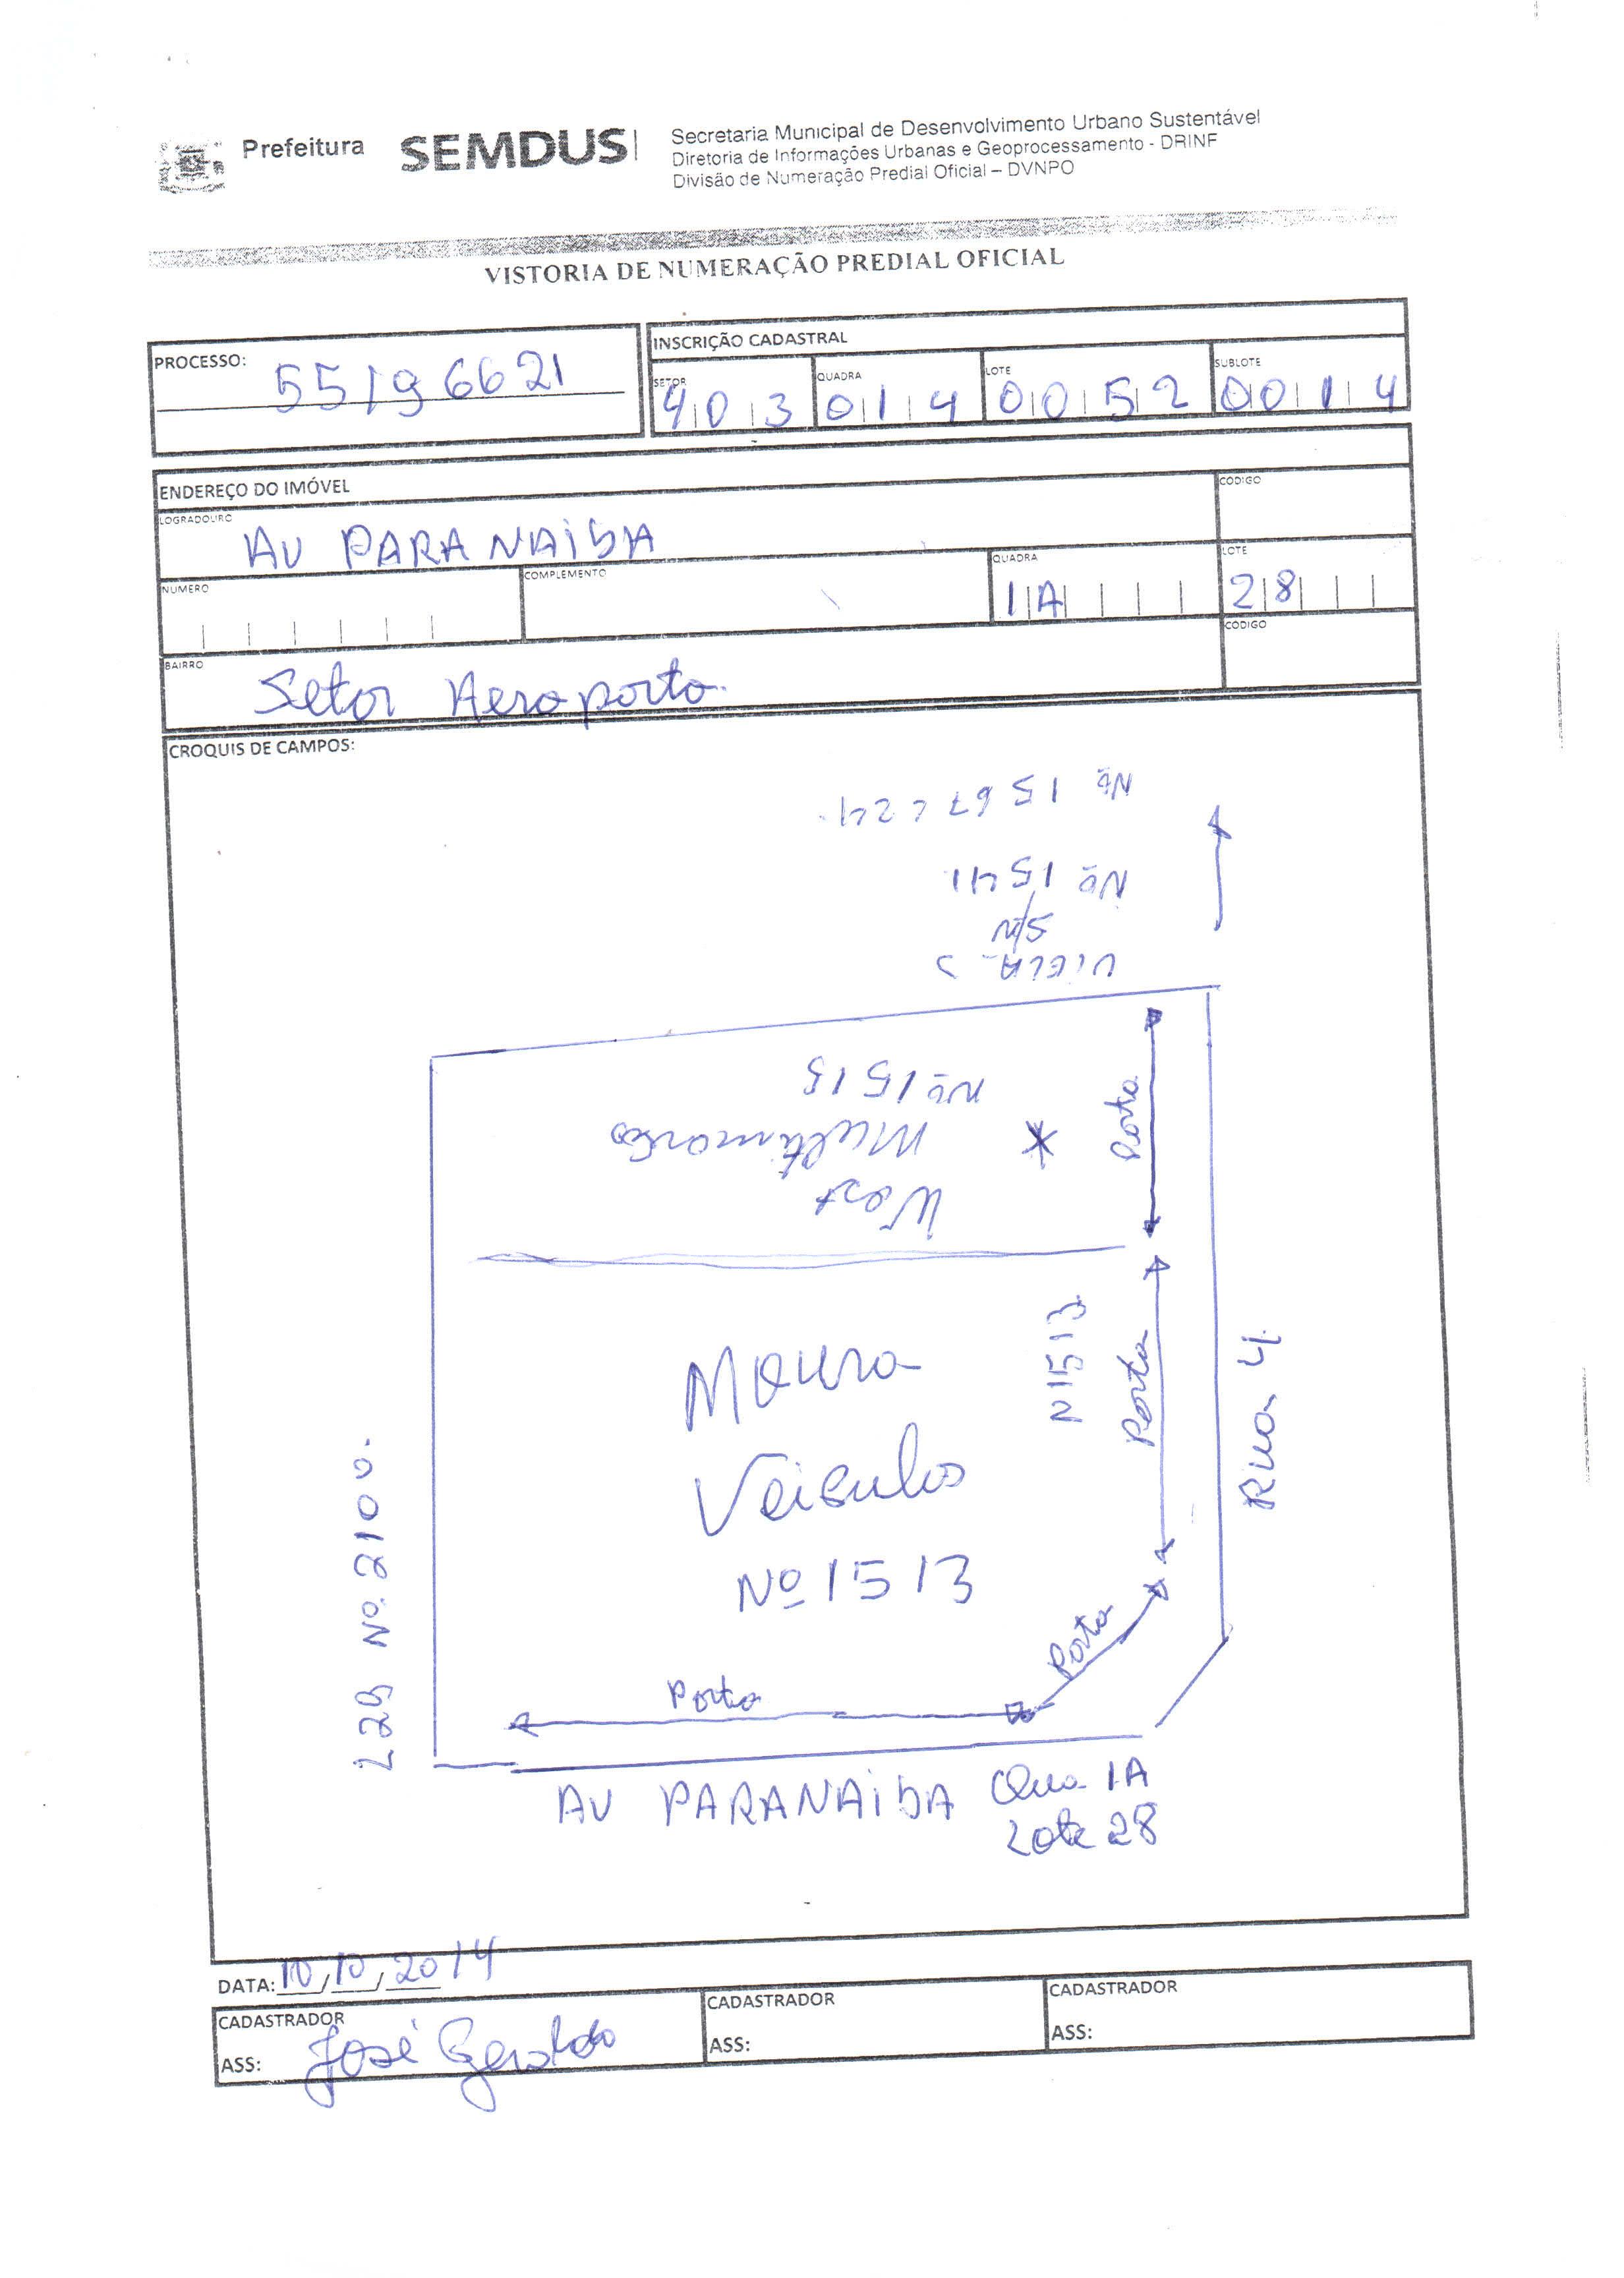 Prefeitura SEMDUS
Secretaria Municipal de Desenvolvimento Urbano Sustentável
Diretoria de Informações Urbanas e Geoprocessamento - DRINF
Divisão de Numeração Predial Oficial – DVNPO
VISTORIA DE NUMERAÇÃO PREDIAL OFICIAL
PROCESSO: 55196621
INSCRIÇÃO CADASTRAL
SETOR 403 QUADRA 014 LOTE 0052 SUBLOTE 0014
ENDEREÇO DO IMÓVEL
LOGRADOURO AV PARANAIBA
CODIGO
NUMERO
COMPLEMENTO
QUADRA 1A
LOTE 28
BAIRRO Setor Aeroporto
CODIGO
CROQUIS DE CAMPOS:
Nº 1567 L 24
Nº 1541
S/N
VIELA
Nº 1515
Multimarcas
West
Porta
Moura
Veiculos
Nº 1513
N 1513
Porta
Rua 4
Porta
Porta
L29 Nº 210 V.
AV PARANAIBA Qua 1A
Lote 28
DATA: 10/10/2014
CADASTRADOR
ASS: José Geraldo
CADASTRADOR
ASS:
CADASTRADOR
ASS: